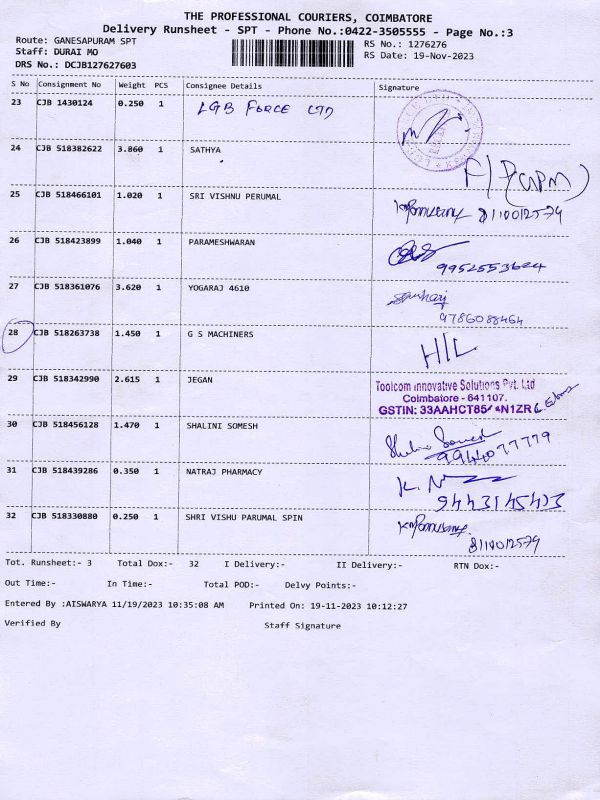 THE PROFESSIONAL COURIERS, COIMBATORE
Delivery Runsheet - SPT - Phone No.:0422-3505555 - Page No.:3
Route: GANESAPURAM SPT
Staff: DURAI MO
DRS No.: DCJB127627603
RS No.: 1276276
RS Date: 19-Nov-2023
S No Consignment No Weight PCS Consignee Details Signature
23 CJB 1430124 0.250 1 LGB FORCE LTD
24 CJB 518382622 3.860 1 SATHYA
25 CJB 518466101 1.020 1 SRI VISHNU PERUMAL 8110012579
26 CJB 518423899 1.040 1 PARAMESHWARAN
9952553624
27 CJB 518361076 3.620 1 YOGARAJ 4610
9786088464
28 CJB 518263738 1.450 1 G S MACHINERS H/L
29 CJB 518342990 2.615 1 JEGAN
Toolcom Innovative Solutions Pvt. Ltd
Coimbatore - 641107.
GSTIN: 33AAHCT85 N1ZR
30 CJB 518456128 1.470 1 SHALINI SOMESH
9944077779
31 CJB 518439286 0.350 1 NATRAJ PHARMACY
9443145423
32 CJB 518330880 0.250 1 SHRI VISHU PARUMAL SPIN
8110012579
Tot. Runsheet:- 3 Total Dox:- 32 I Delivery:- II Delivery:- RTN Dox:-
Out Time:- In Time:- Total POD:- Delvy Points:-
Entered By :AISWARYA 11/19/2023 10:35:08 AM Printed On: 19-11-2023 10:12:27
Verified By Staff Signature